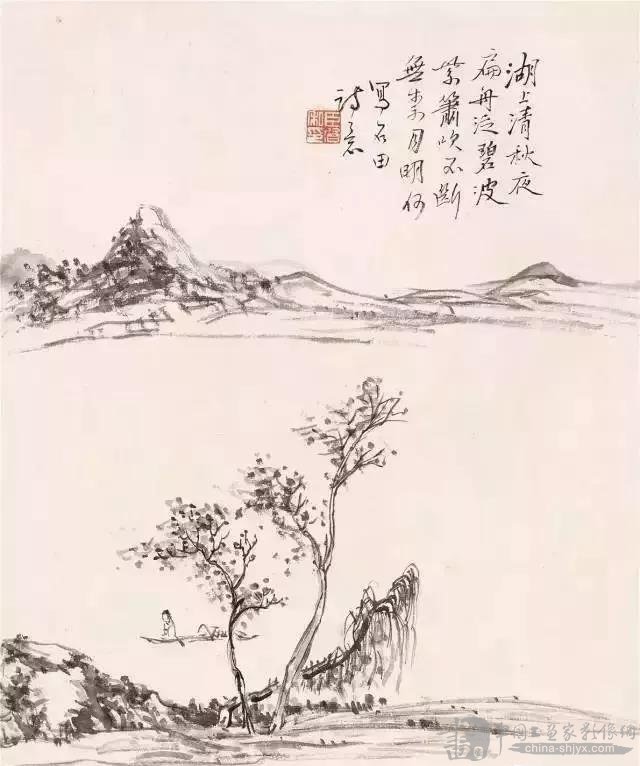 湖上清秋夜
扁舟泛碧波
紫簫吹不断
無奈月明何
寫石田
詩意
china-shjyx.com